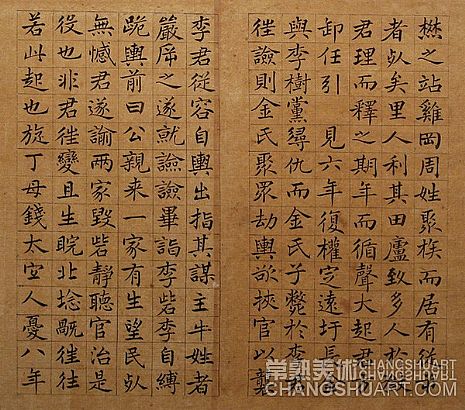 之站雞岡周姓聚族而居有
者死矣里人利其田廬致多人於
君理而釋之期年而循聲大起君
卸任引 見六年復權定遠圩長
與李樹黨尋仇而金氏子斃於李
往譣則金氏聚眾劫輿欲挾官以襲
李君從容自輿出指其謀主牛姓者
嚴斥之遂就譣譣畢詣李砦李自縛
跪輿前曰公親來一家有生望民死
無憾君遂諭兩家毀砦靜聽官治是
役也非君往變且生睆北埝甌往往
若此起也旋丁母錢太宜人憂八年
常熟美術 CHANGSHUART
CHANGSHUART.COM